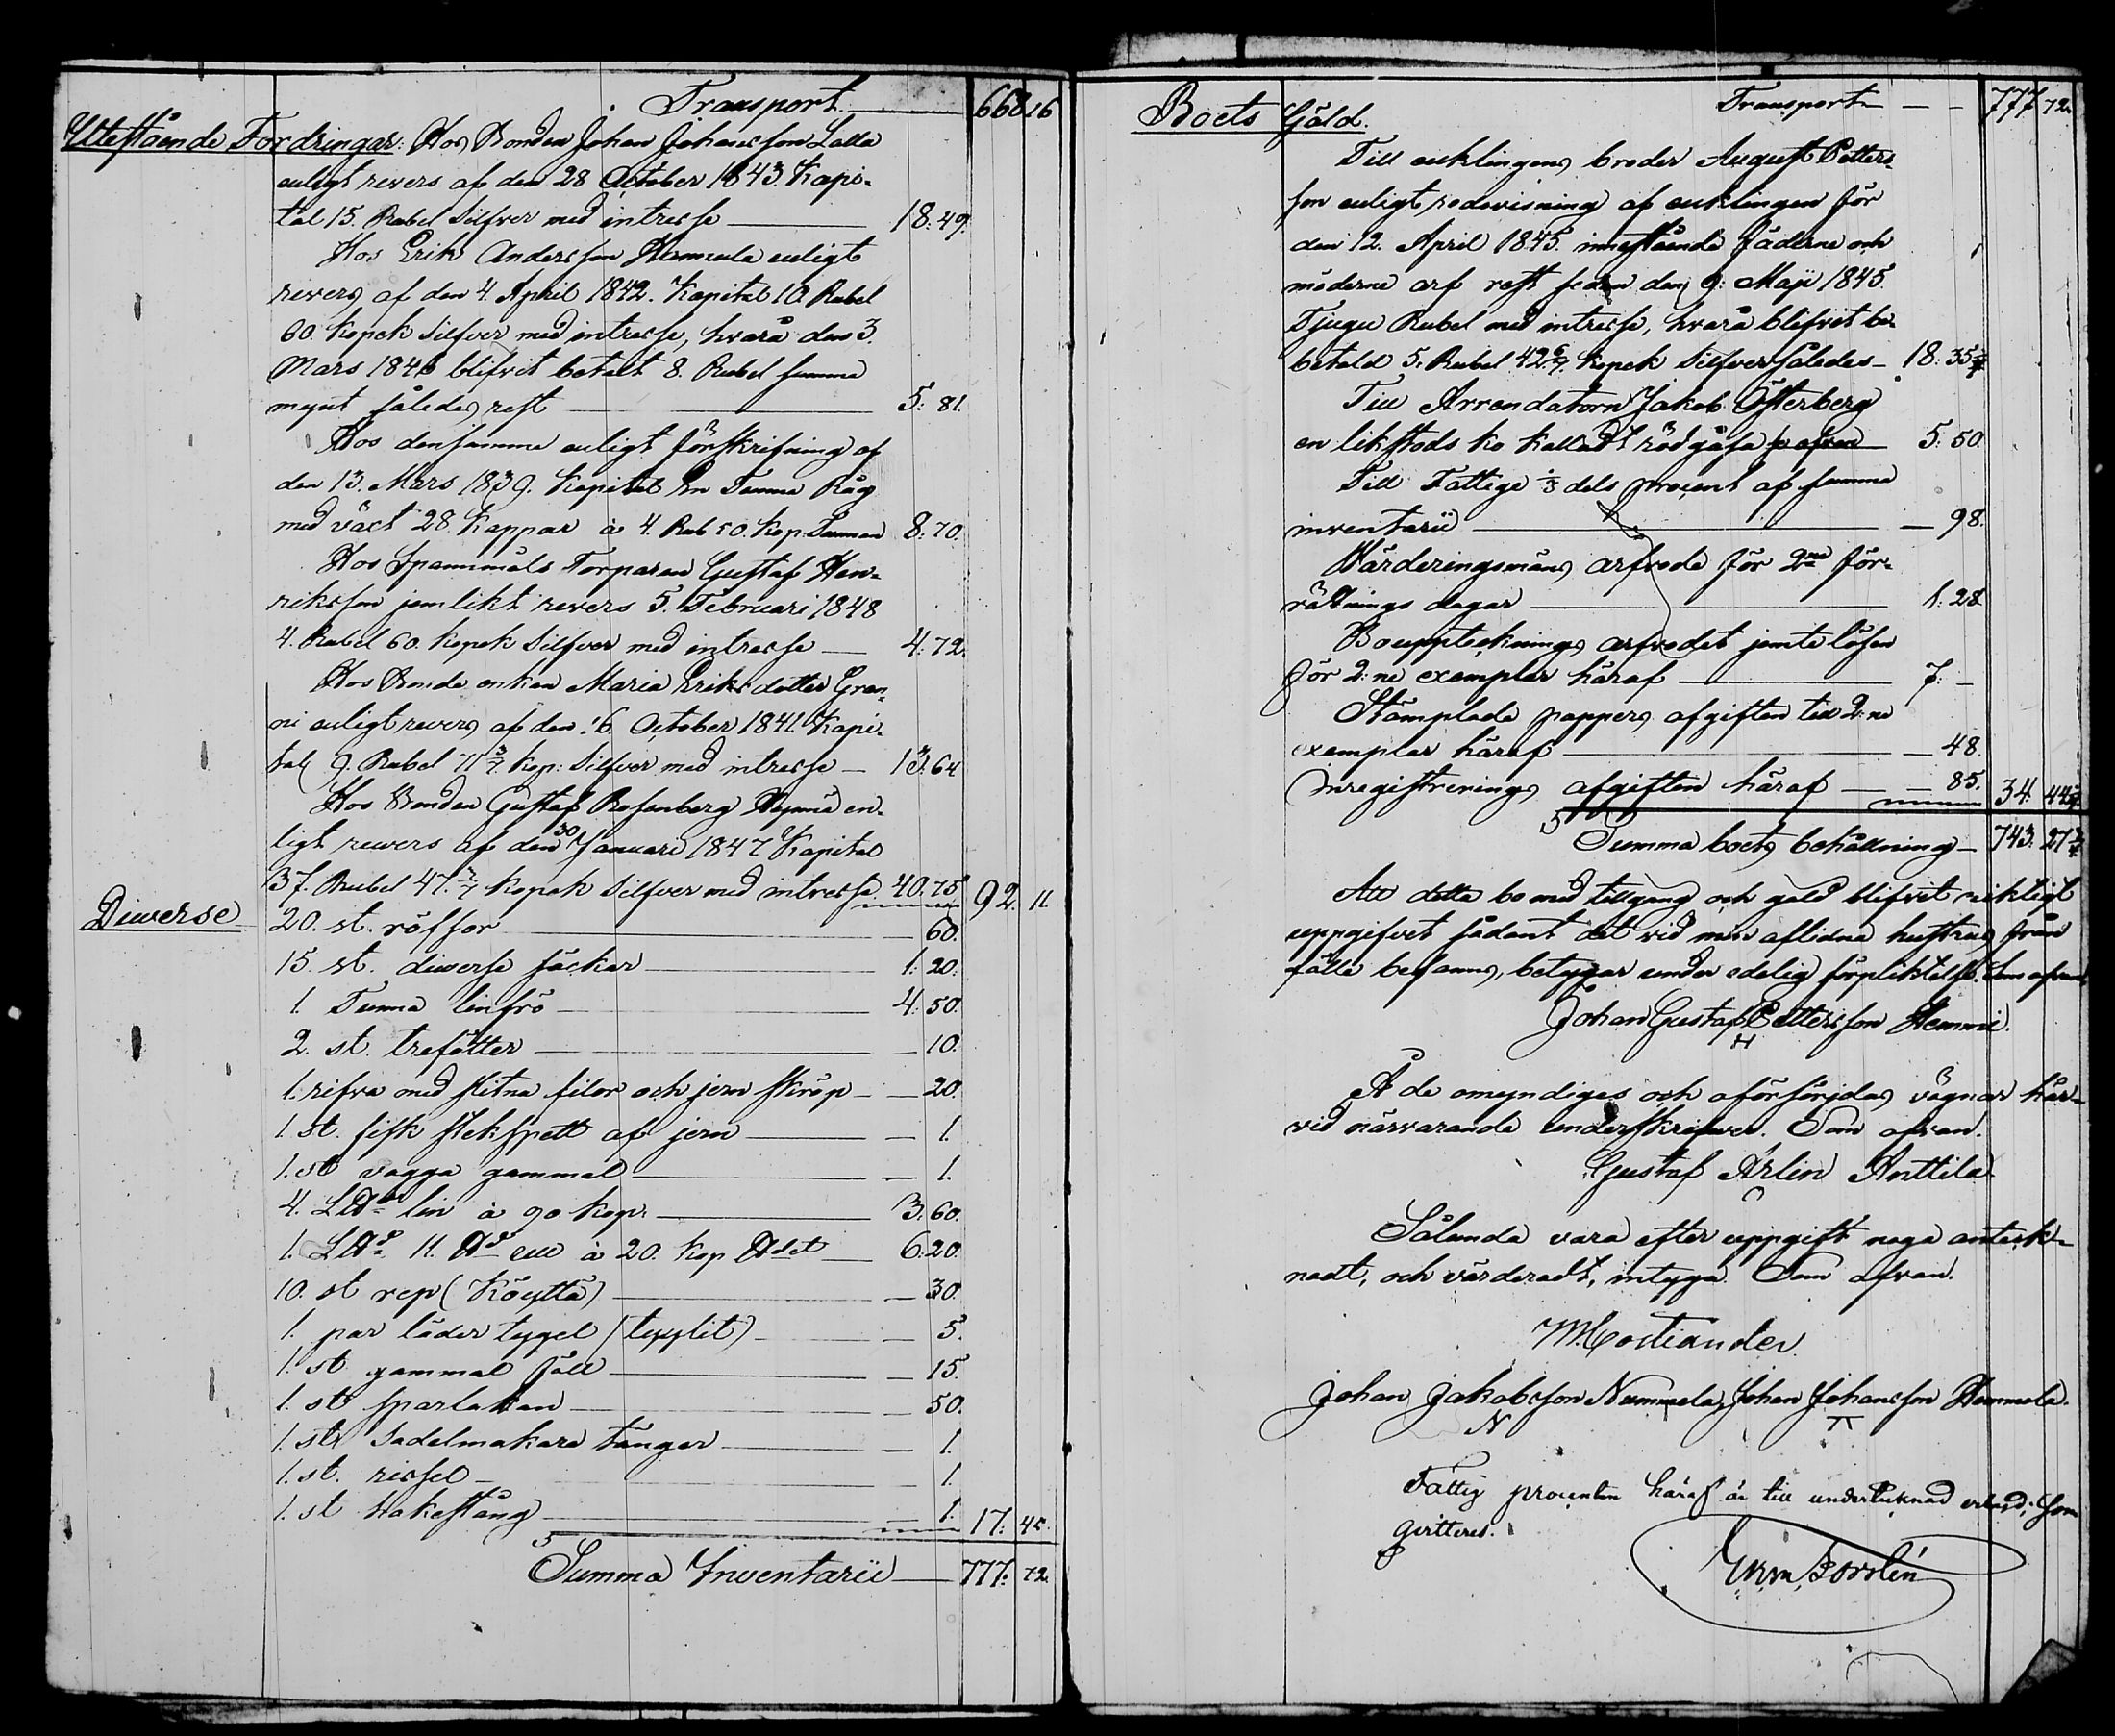 Transport 668 16
Utestående Fordringar: Hos Bonden Johan Johansson Lalla
enligt revers af den 28 October 1843. Kapi-
tal 15. Rubel Silfver med intresse 18: 49.
Hos Erik Andersson enligt
revers af den 4. April 1842. Kapital 10 Rubel
60. Kopek Silfver med intresse, hvarå den 3.
Mars 1848 blifvit betalt 8. Rubel samma
mynt således rest 5: 81.
Hos densamma enligt förskrifning af
den 13. Mars 1839. Kapital En Tunna Råg
med växt 28 Kappar à 4. Rub 50. Kop: Tunnan 8: 70.
Hos Spannmåls Torparen Gustaf Hen-
riksson jemlikt revers 5. Februari 1848
4. Rubel 60. Kopek Silfver med intresse 4: 72.
Hos Bonde enkan Maria Eriksdotter Gran-
ni enligt revers af den 16 October 1841. Kapi-
tal 9. Rubel 71 3/7. Kop: Silfver med intresse 13: 64
Hos Bonden Gustaf Rosenberg en-
ligt revers af den 30 Januari 1847 Kapital
37. Rubel 47. 3/7 Kopek Silfver med intresse 40. 75 92. 11.
Diverse 20. st. röffor 60.
15 st. diverse säckar 1: 20.
1. Tunna linfrö 4: 50.
2. st. trefötter 10.
1. rifva med slitna filor och jern skröp 20.
1. st. fisk stekspett af jern 1.
1. st vagga gammal 1.
4. L℔ lin à 90 kop: 3: 60.
1. L℔ 11. ℔ ull à 20. Kop ℔det 6: 20.
10. st rep (Köyttä) 30.
1. par läder tygel 5.
1. st gammal fäll 15.
1. st sparlakan 50.
1. st Sadelmakare tänger 1.
1. st. rissel 1.
1. st Hakestång 1. 17: 45.
Summa Inventarii 777: 72.
Boets Gäld. Transport 777 72.
Till enklingens broder August Petters-
son enligt redovisning af enklingen för
den 12. April 1845. innestående fäderne och
möderne arf rest sedan den 9: Maji 1845
Tjugu Rubel med intresse, hvarå blifvit be-
betald 5. Rubel 42 6/7. Kopek Silfver således 18: 35 5/7
Till Arrendatorn Jakob Österberg
en likstods ko kallad rödgåsa 5: 50.
Till Fattige 1/8 dels procent af summa
inventarii 98.
Wärderingsmäns arfvode för 2ne för-
rättnings dagar 1: 28
Bouppteknings arfvodet jemte lösen
för 2: ne exemplar häraf 7: –
Stämplade pappers afgiften till 2: ne
exemplar häraf 48.
Inregistrerings afgiften häraf 85. 34. 44 5/7
Summa boets behållning 743. 27 2/7
Att detta bo med tillgång och gäld blifvet riktigt
uppgifvet sådant det vid min aflidna hustrus från
fälle befanns, betygar under edelig förpliktelse. Som ofvan
Johan Gustaf Pettersson Hemmi.
H
Å de omyndiges och oförsörjdas vägnar här-
vid närvarande underskrifver. Som ofvan.
Gustaf Arlin Anttila
Sålunda vara efter uppgift noga anteck-
nadt, och värderadt, intyga. Som ofvan.
M. Costiander.
Johan Jakobsson Nummela, Johan Johansson Hemmola.
N
Fattig procenten häraf är till undertecknad erlagd; som
qvitteras.